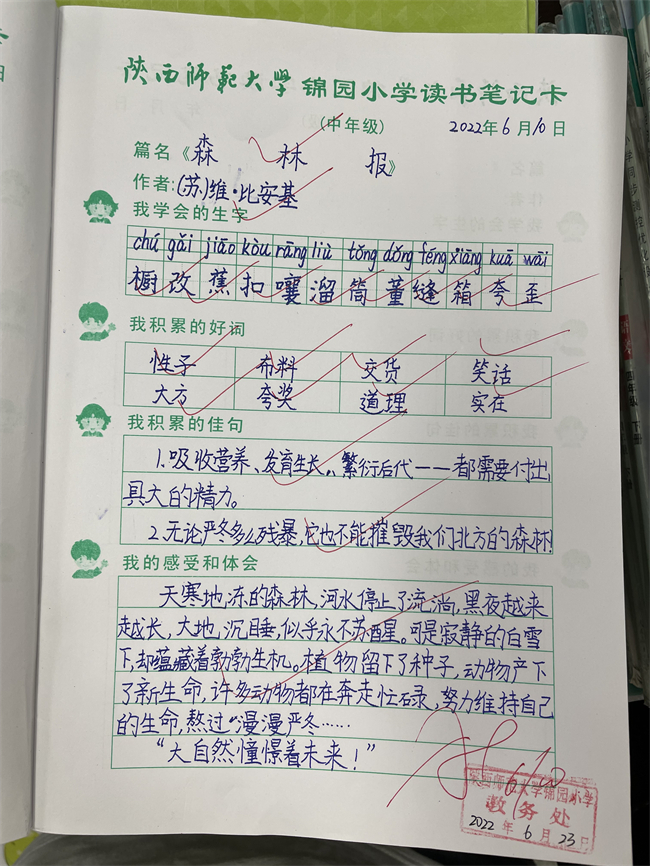 陕西师范大学 锦园小学读书笔记卡
(中年级) 2022年6月10日
篇名《森林报》
作者:(苏)维·比安基
我学会的生字
chú gǎi jiāo kòu rāng liù tǒng dǒng féng xiāng kuā wāi
橱 改 蕉 扣 嚷 溜 筒 董 缝 箱 夸 歪
我积累的好词
性子 布料 交货 笑话
大方 夸奖 道理 实在
我积累的佳句
1.吸收营养、发育生长、繁衍后代——都需要付出
具大的精力。
2.无论严冬多么残暴,它也不能摧毁我们北方的森林!
我的感受和体会
天寒地冻的森林,河水停止了流淌,黑夜越来
越长,大地沉睡,似乎永不苏醒。可是寂静的白雪
下,却蕴藏着勃勃生机。植物留下了种子,动物产下
了新生命,许多动物都在奔走忙碌,努力维持自己
的生命,熬过“漫漫严冬……
“大自然憧憬着未来!”
陕西师范大学锦园小学
教务处
2022年6月23日